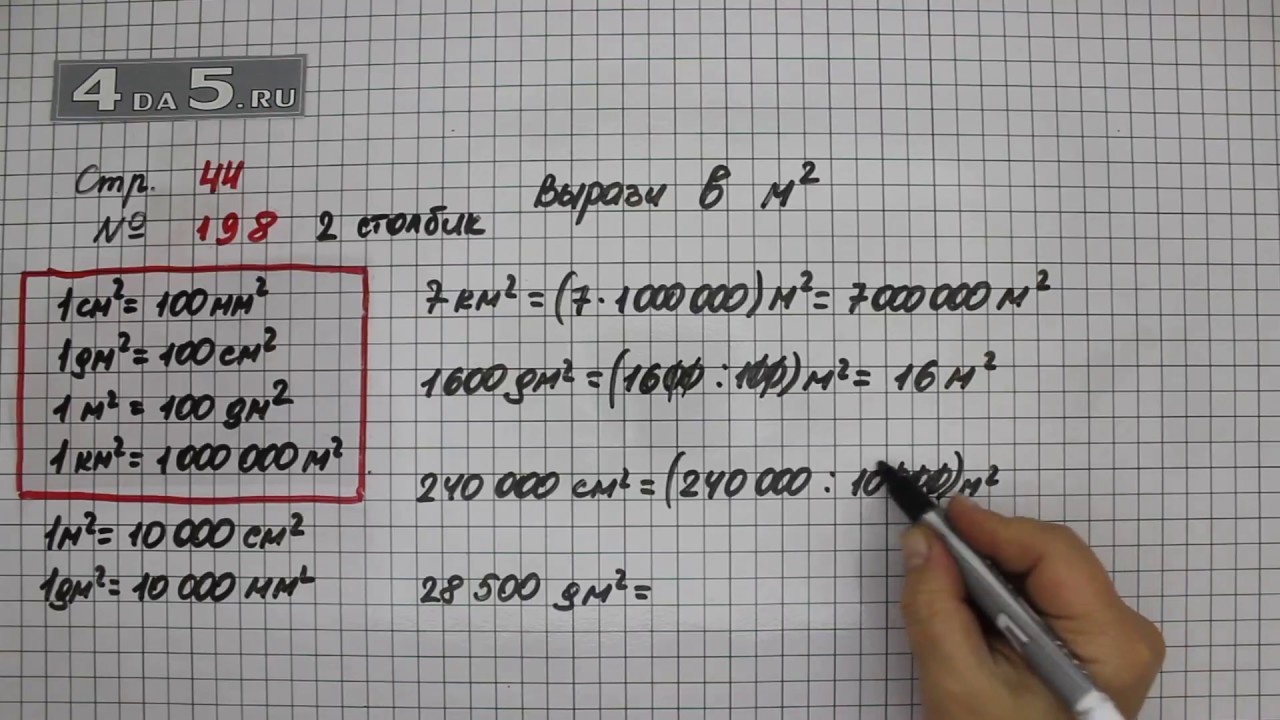 4DA5.RU
Стр. 44
№ 198 2 столбик
Вырази в м²
1 см² = 100 мм²
1 дм² = 100 см²
1 м² = 100 дм²
1 км² = 1 000 000 м²
1 м² = 10 000 см²
1 дм² = 10 000 мм²
7 км² = (7 · 1 000 000) м² = 7 000 000 м²
1600 дм² = (1600 : 100) м² = 16 м²
240 000 см² = (240 000 : 10 000) м²
28 500 дм² =